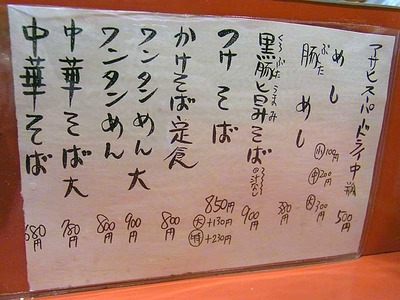 アサヒスパードライ中瓶 500円
めし 小100円 中200円 大300円
豚めし 380円
ぶた
黒豚旨みそば 900円
くろぶた うまみ
つけそば 850円
大+130円
特+230円
かけそば定食 800円
ワンタンめん大 900円
ワンタンめん 800円
中華そば大 780円
中華そば 680円